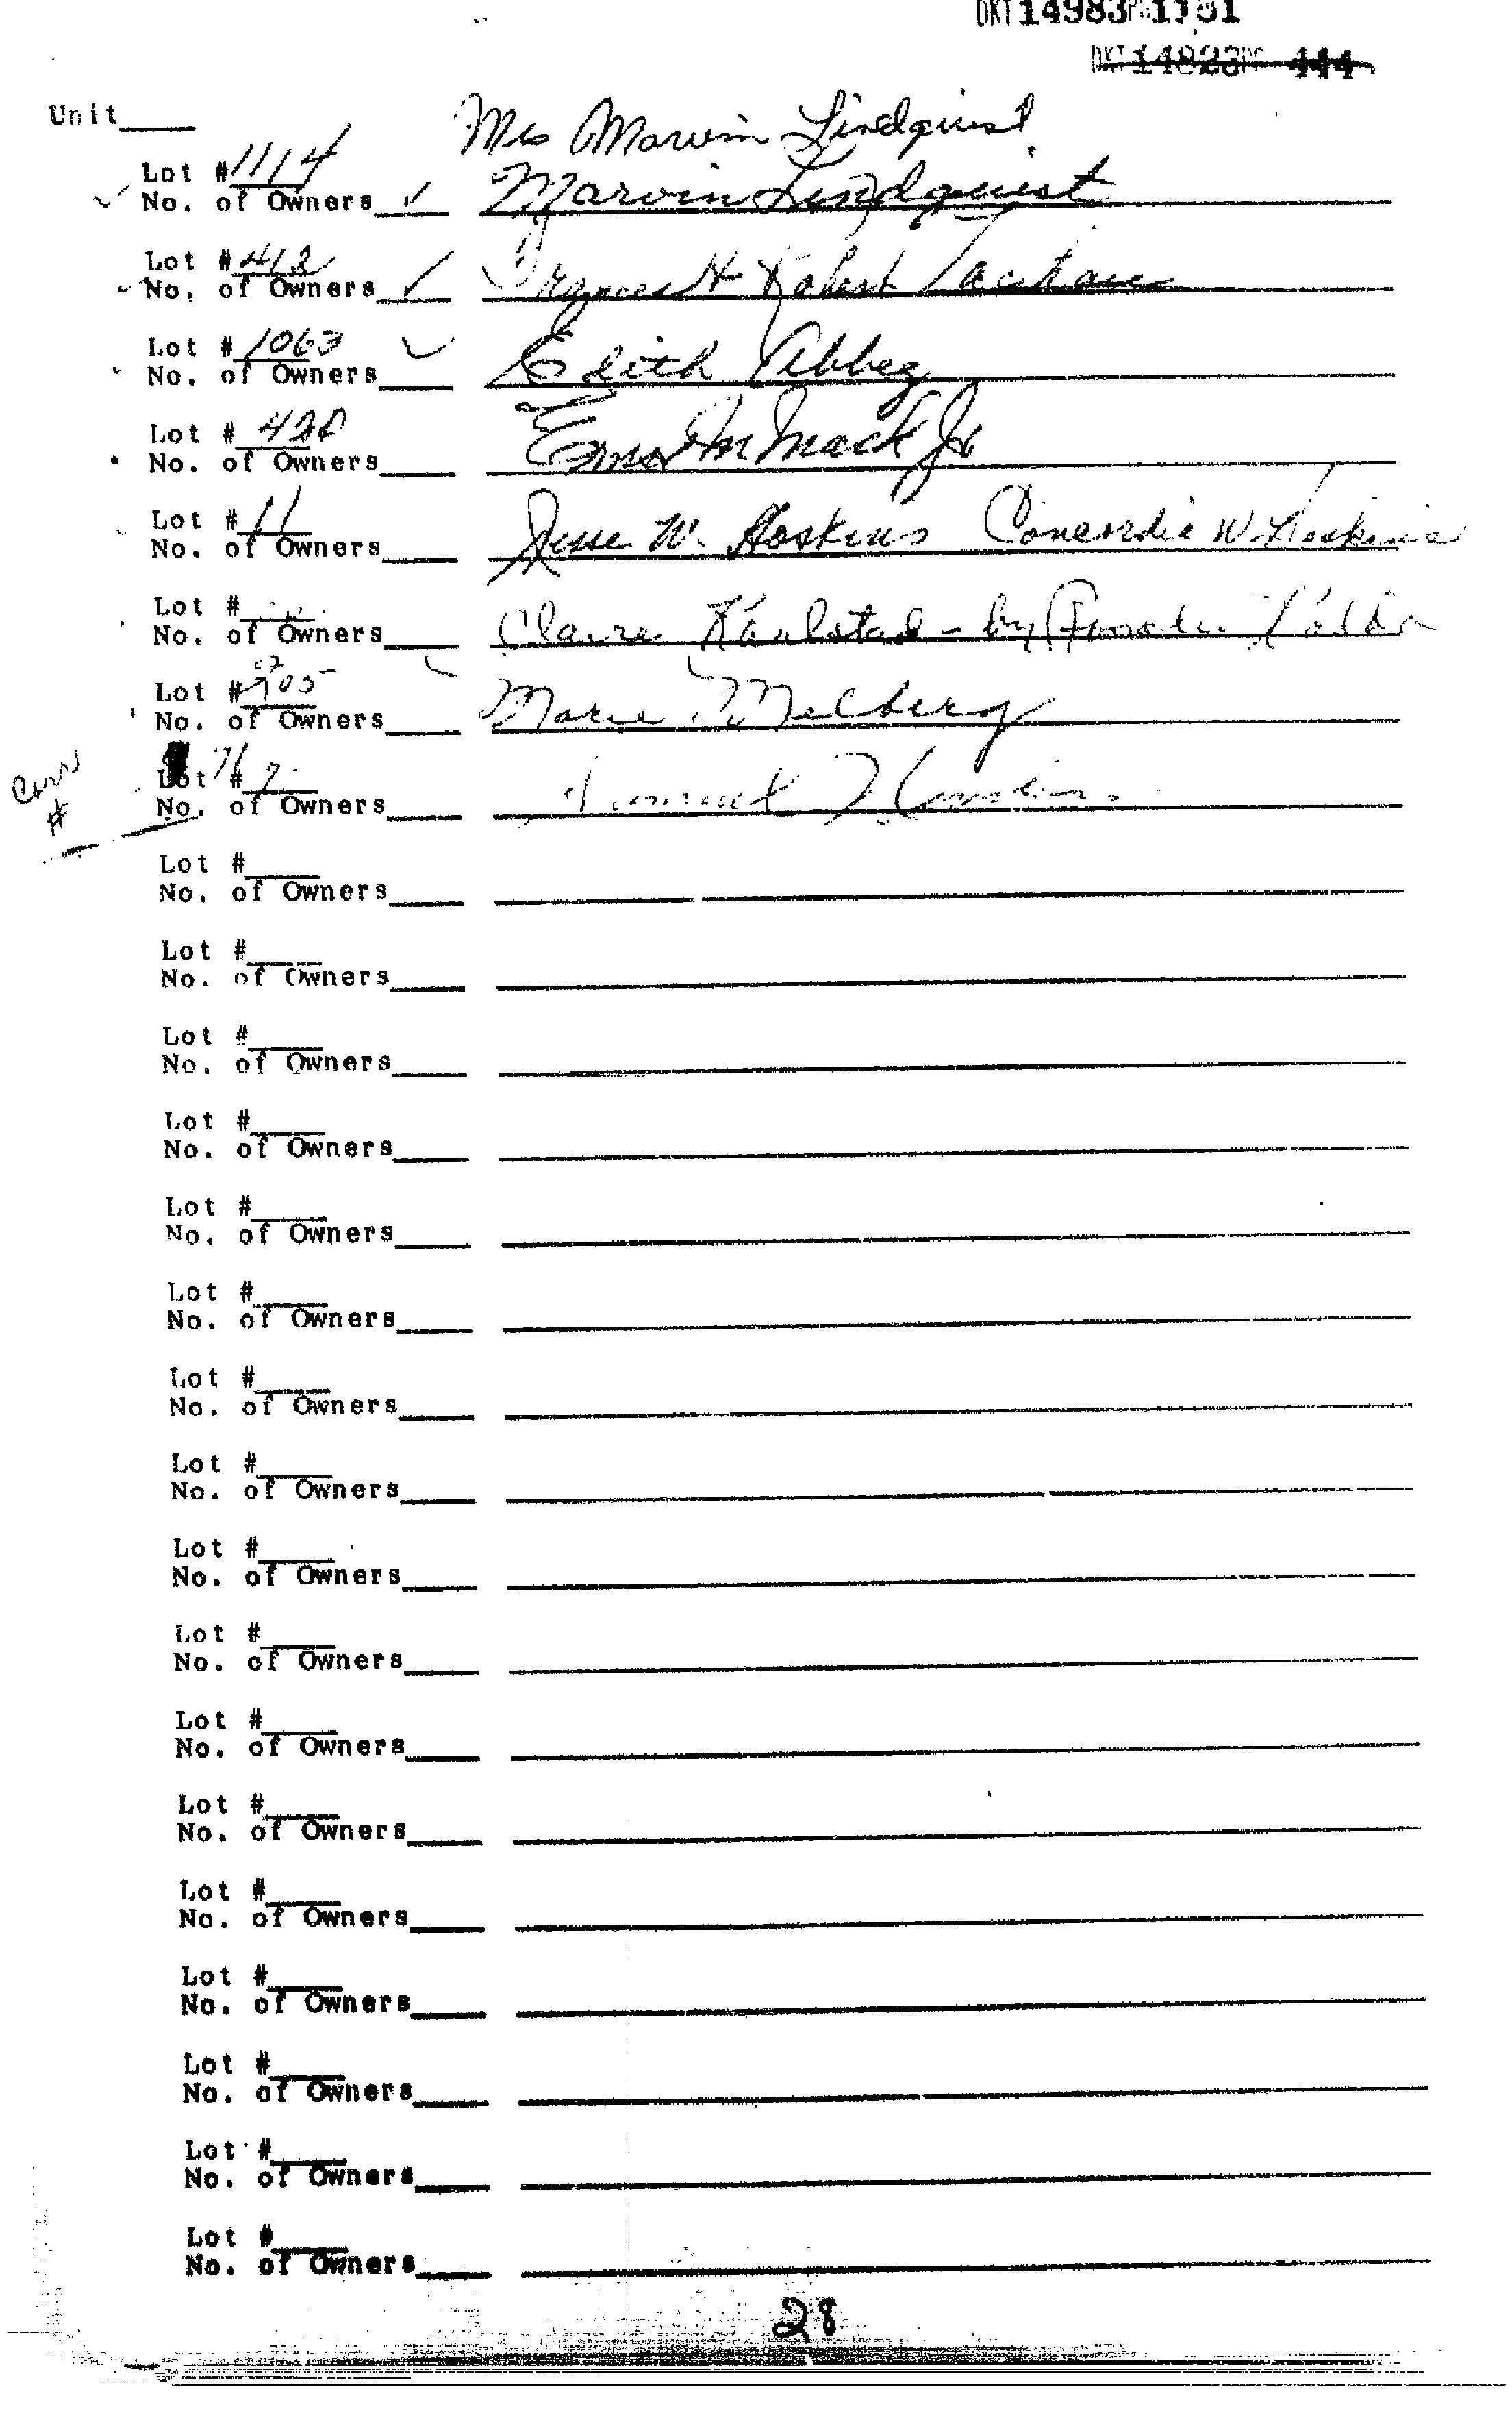 DKT 14983 PG 1101
DKT 14823 PG 444
Unit____
Mrs Marvin Lindquist
Lot #1114
No. of Owners____ Marvin Lindquist
Lot #412
No. of Owners____ Robert
Lot #1063
No. of Owners____ Edith Abbey
Lot #
No. of Owners____ Mack Jr
Lot #11
No. of Owners____ Jesse W. Hoskins Concordia W. Hoskins
Lot #____
No. of Owners____ Claire - by
Lot #705
No. of Owners____ Marie Melberg
Lot #
No. of Owners____
Corr
#
Lot #____
No. of Owners____
Lot #____
No. of Owners____
Lot #____
No. of Owners____
Lot #____
No. of Owners____
Lot #____
No. of Owners____
Lot #____
No. of Owners____
Lot #____
No. of Owners____
Lot #____
No. of Owners____
Lot #____
No. of Owners____
Lot #____
No. of Owners____
Lot #____
No. of Owners____
Lot #____
No. of Owners____
Lot #____
No. of Owners____
Lot #____
No. of Owners____
Lot #____
No. of Owners____
Lot #____
No. of Owners____
Lot #____
No. of Owners____
28